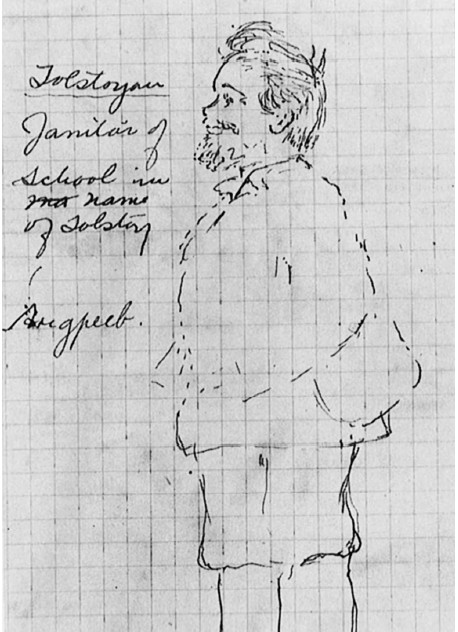 Tolstoyan
Janitor of
School in
name
of Tolstoy
Андреев.